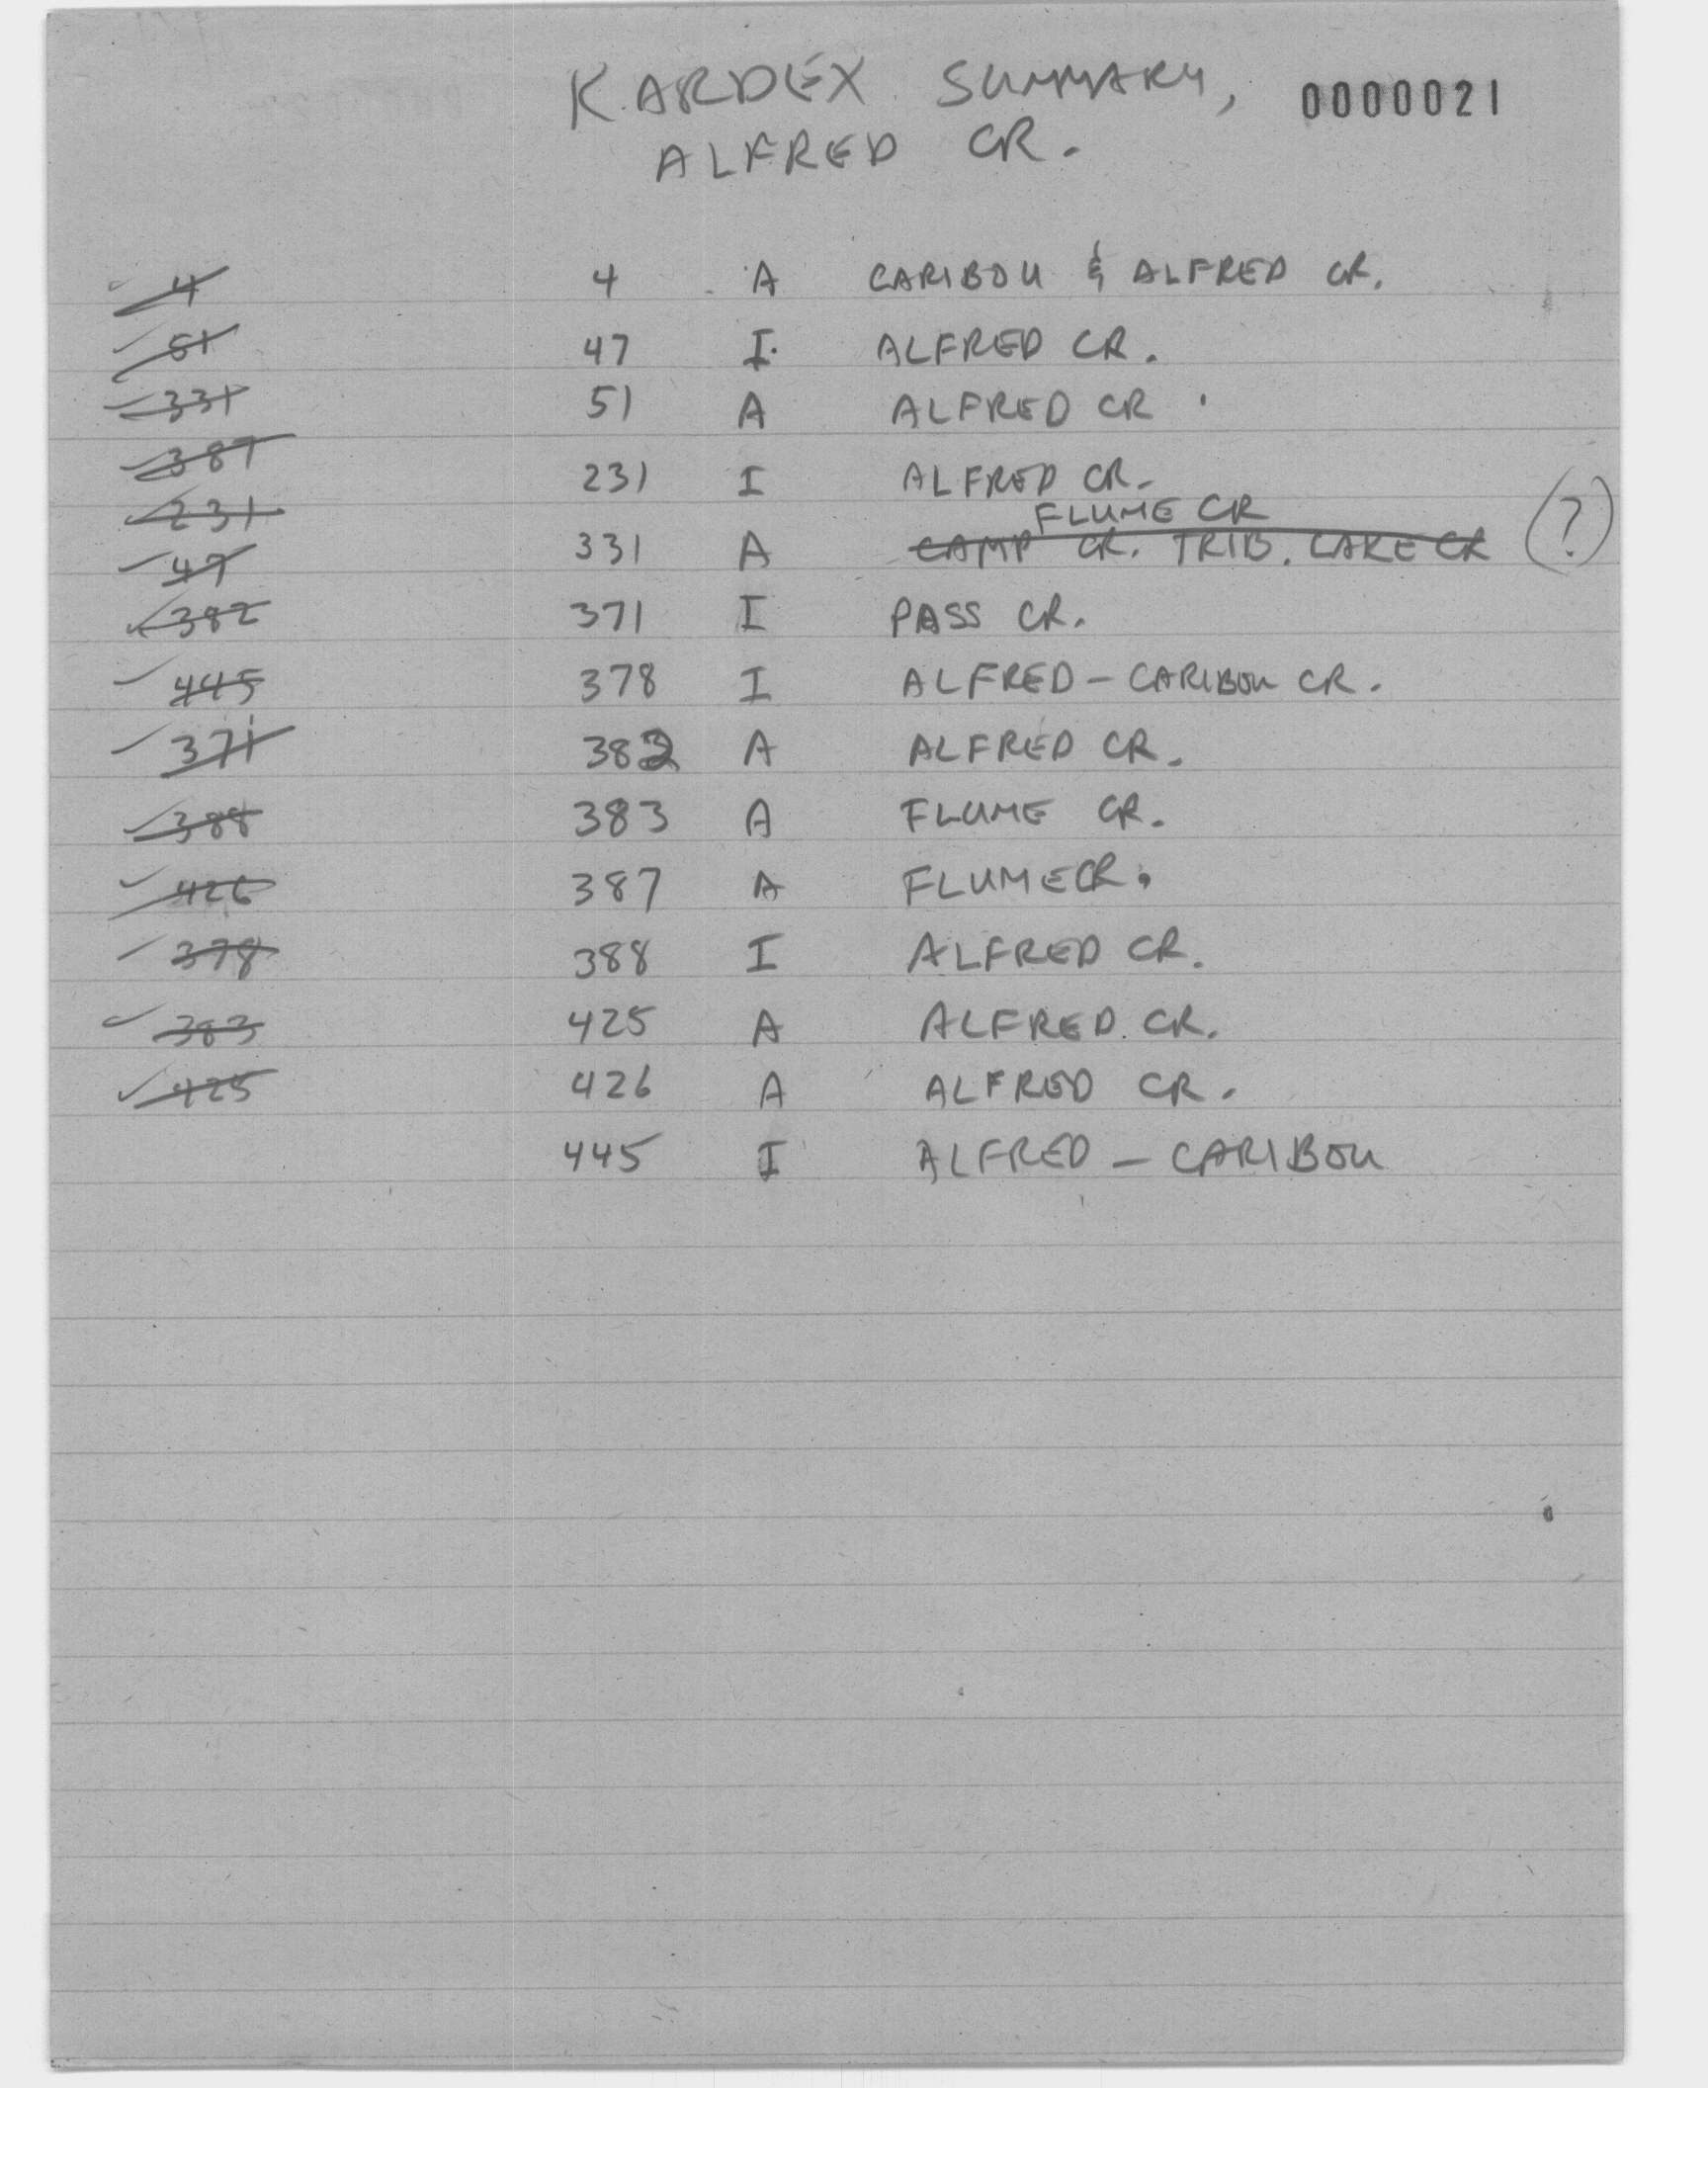 KARDEX SUMMARY, 0000021
ALFRED CR.
4 4 A CARIBOU & ALFRED CR.
51 47 I ALFRED CR.
331 51 A ALFRED CR.
387 231 I ALFRED CR.
FLUME CR
231 331 A CAMP CR. TRIB. LAKE CR (?)
47
382 371 I PASS CR.
445 378 I ALFRED - CARIBOU CR.
371 382 A ALFRED CR.
388 383 A FLUME CR.
426 387 A FLUME CR.
378 388 I ALFRED CR.
383 425 A ALFRED CR.
425 426 A ALFRED CR.
445 I ALFRED - CARIBOU